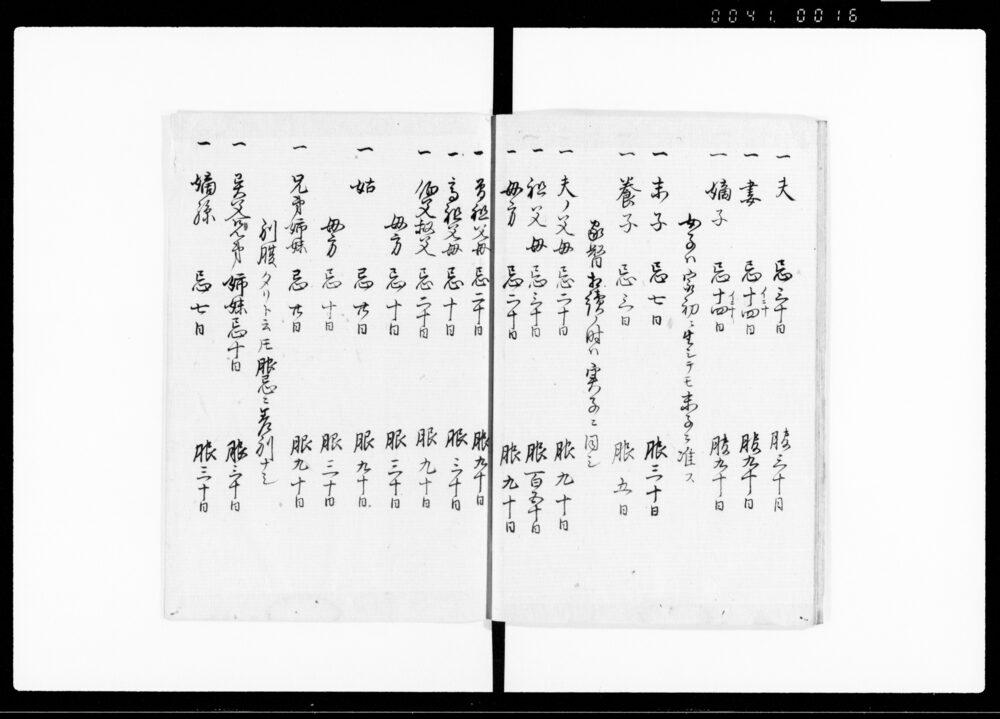 0041. 0016
一 夫 忌三十日 服三十月
一 妻 忌十四日 服九十日
一 嫡子 忌十四日 服九十日
女子ハ家初ニ生シテモ末子ニ准ス
一 末子 忌七日 服三十日
一 養子 忌三日 服五日
家督相続ノ時ハ実子ニ同シ
一 夫ノ父母 忌二十日 服九十日
一 祖父母 忌三十日 服百五十日
一 母方 忌二十日 服九十日
一 曽祖父母 忌二十日 服九十日
一 高祖父母 忌十日 服三十日
一 伯父叔父 忌二十日 服九十日
母方 忌十日 服三十日
一 姑 忌廿日 服九十日
母方 忌十日 服三十日
一 兄弟姉妹 忌廿日 服九十日
別腹タリト云圧服忌ニ差別ナシ
一 異父兄弟姉妹忌十日 服三十日
一 嫡孫 忌七日 服三十日